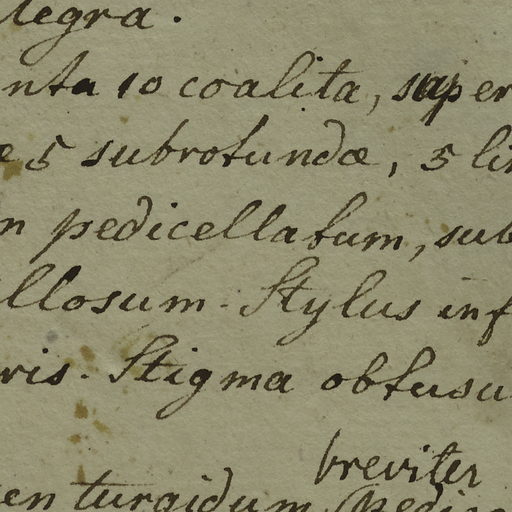 legra.
nta 10 coalita, super
e 5 subrotundæ, 5 lin
n pedicellatum, sub
llosum. Stylus inf
ris. Stigma obtusu
breviter
en turgidum, pedic